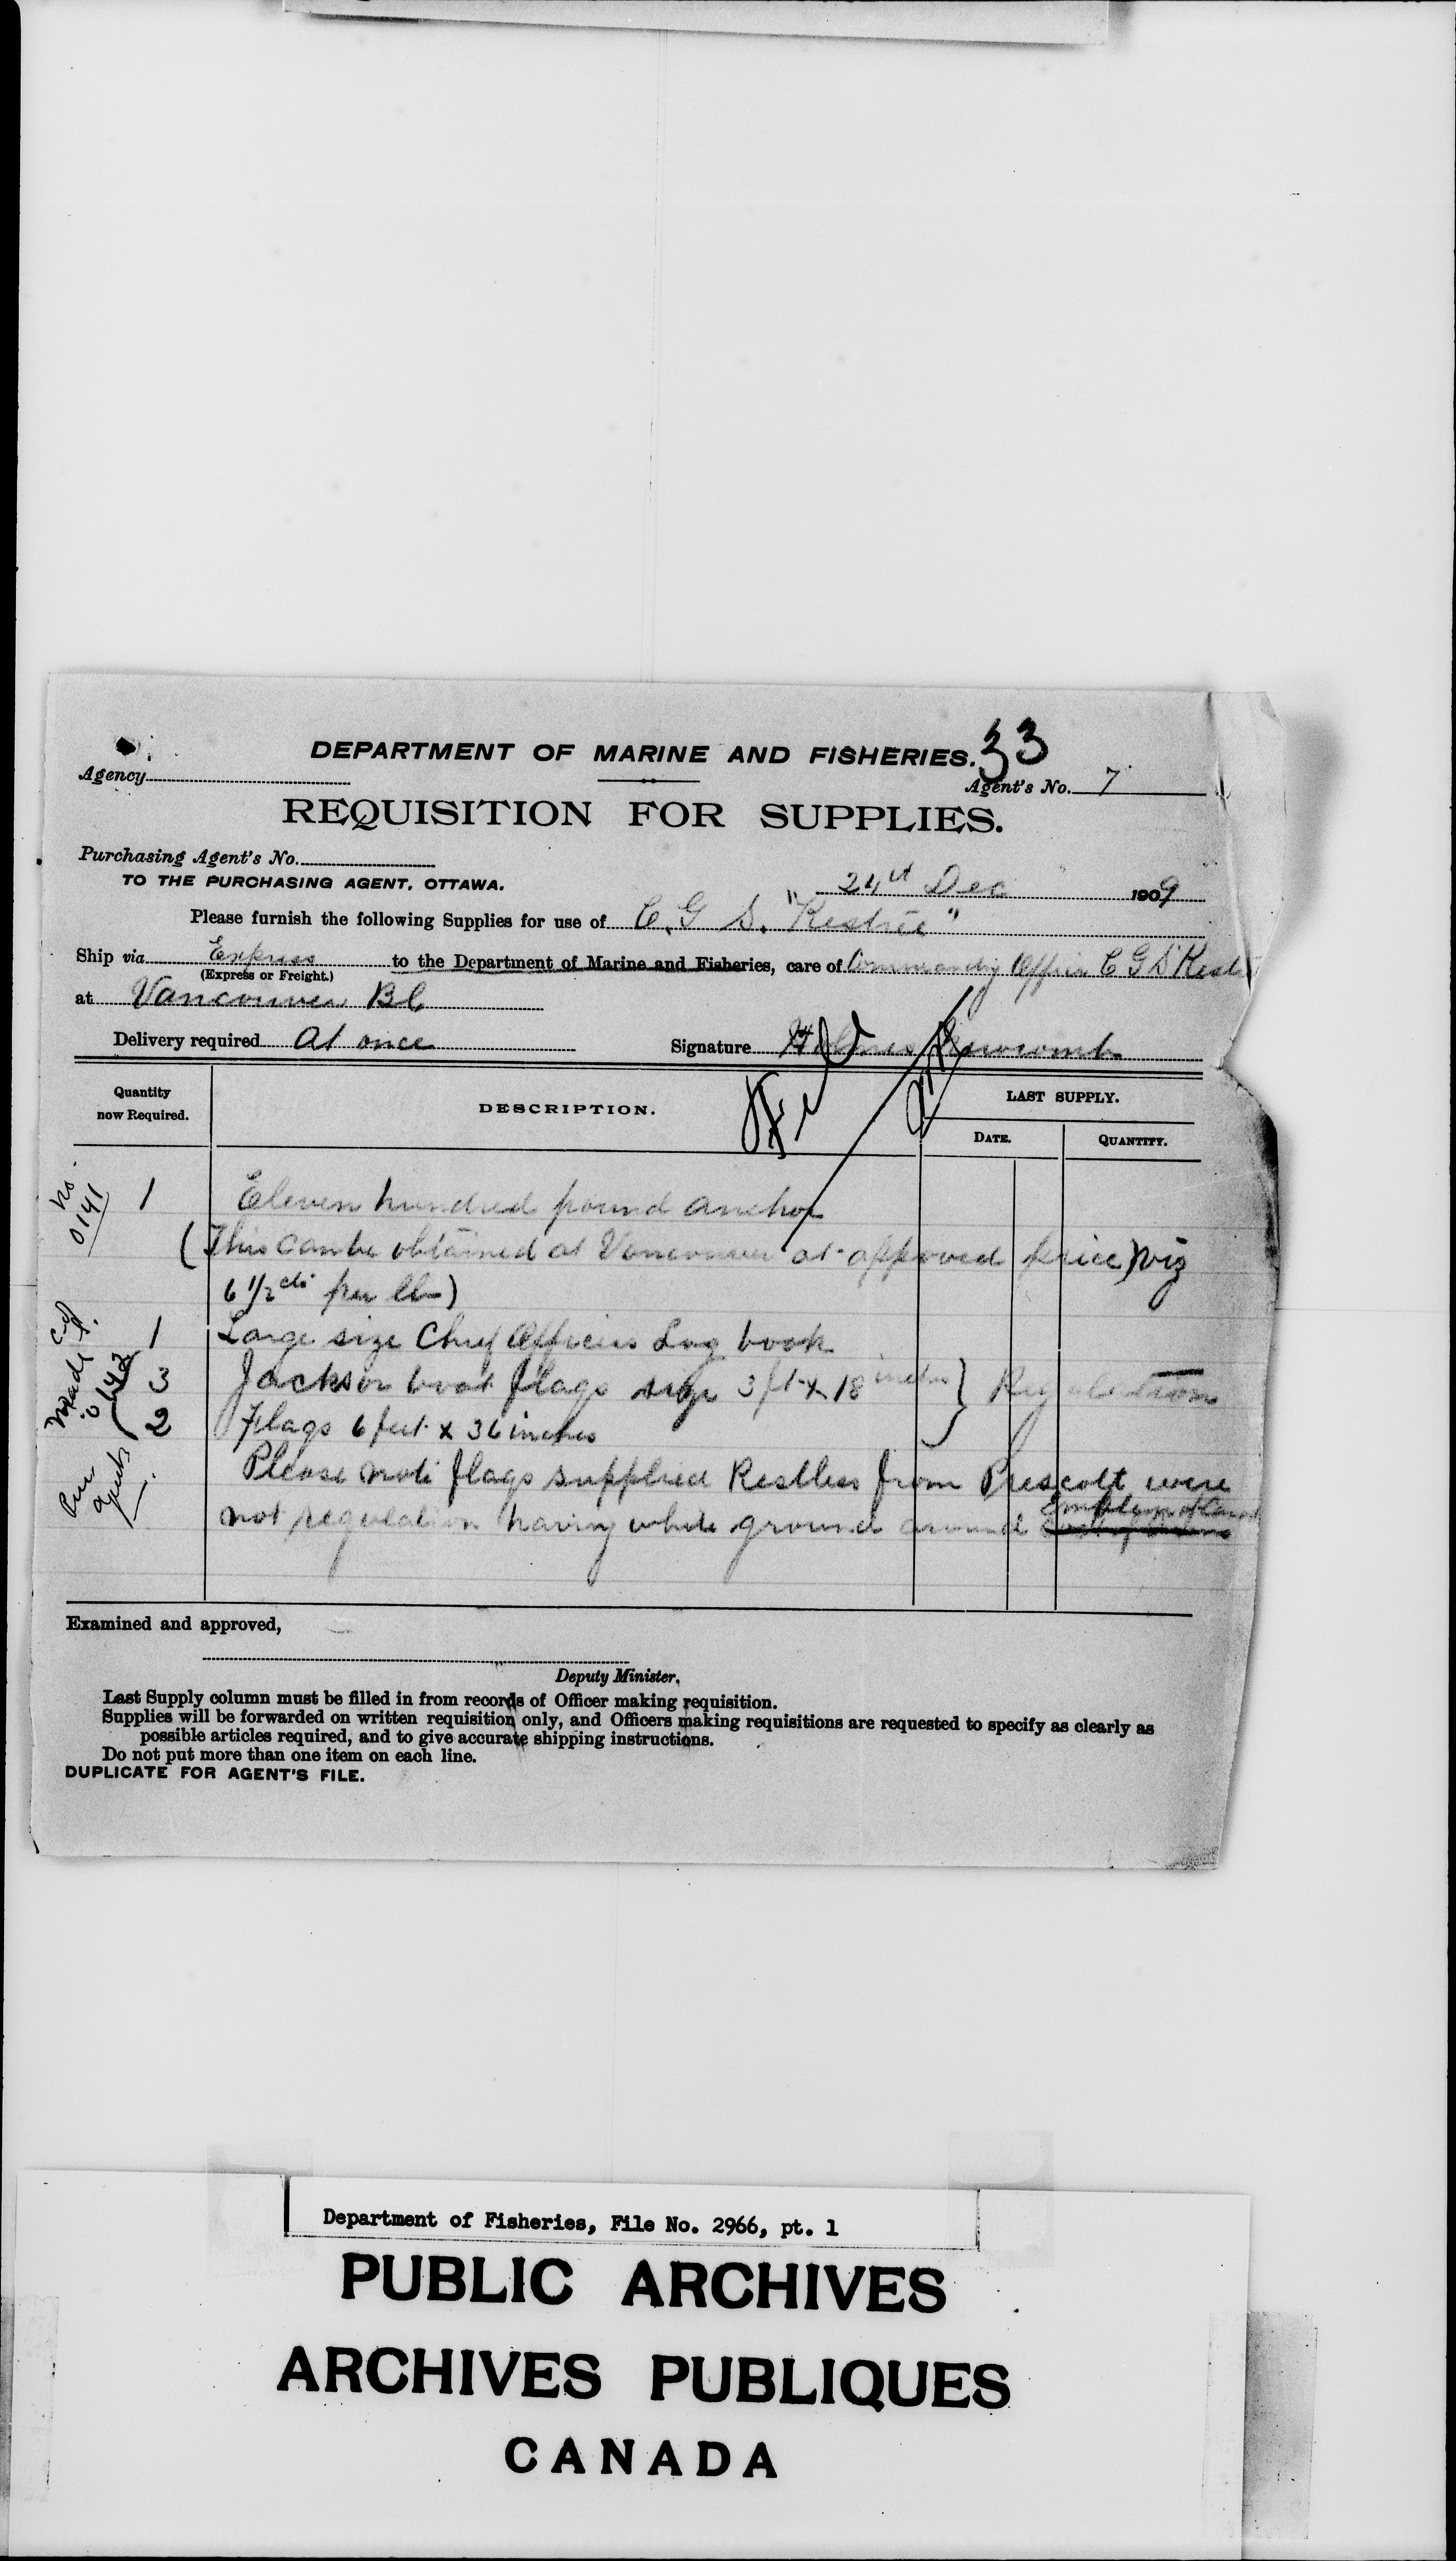 DEPARTMENT OF MARINE AND FISHERIES. 33
Agency
Agent's No. 7
REQUISITION FOR SUPPLIES.
Purchasing Agent's No.
TO THE PURCHASING AGENT, OTTAWA.
Dec 1909
Please furnish the following Supplies for use of C. G. S. "
Ship via Express to the Department of Marine and Fisheries, care of Commanding Officer C G S
(Express or Freight.)
at Vancouver BC
Delivery required At once
Signature Holmes Newcomb
Quantity now Required.
DESCRIPTION.
LAST SUPPLY.
DATE.
QUANTITY.
No. 0141
1 Eleven hundred pound anchor
(This can be obtained at Vancouver at approved price) viz
6 1/2 cts per lb)
1 Large size Chief Officers Log book
3 Jackson boat flags size 3 ft x 18 inches } Regulation
2 Flags 6 feet x 36 inches
Please note flags supplied Restless from Prescott were
not regulation having white ground around Emblem of
Examined and approved,
Deputy Minister.
Last Supply column must be filled in from records of Officer making requisition.
Supplies will be forwarded on written requisition only, and Officers making requisitions are requested to specify as clearly as
possible articles required, and to give accurate shipping instructions.
Do not put more than one item on each line.
DUPLICATE FOR AGENT'S FILE.
Department of Fisheries, File No. 2966, pt. 1
PUBLIC ARCHIVES
ARCHIVES PUBLIQUES
CANADA